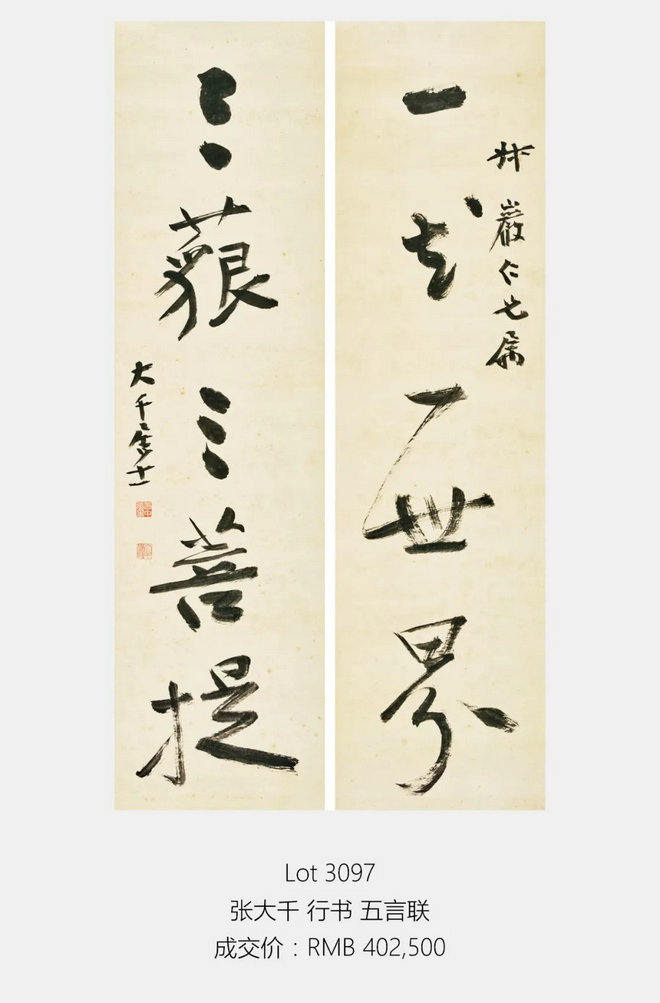 一花一世界
叔巖仁兄属
三藐三菩提
大千居士
Lot 3097
张大千 行书 五言联
成交价：RMB 402,500